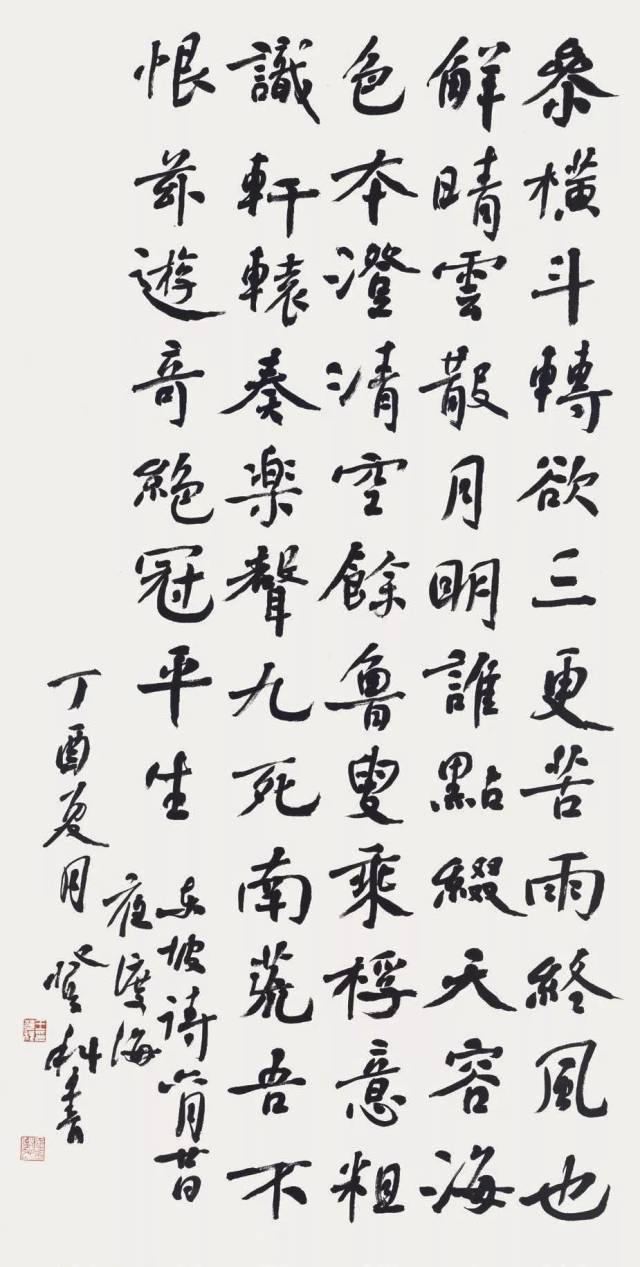 參橫斗轉欲三更苦雨終風也
解晴雲散月明誰點綴天容海
色本澄清空餘魯叟乘桴意粗
識軒轅奏楽聲九死南荒吾不
恨茲遊奇絶冠平生
東坡詩六月廿日
夜渡海
丁酉夏月登科書